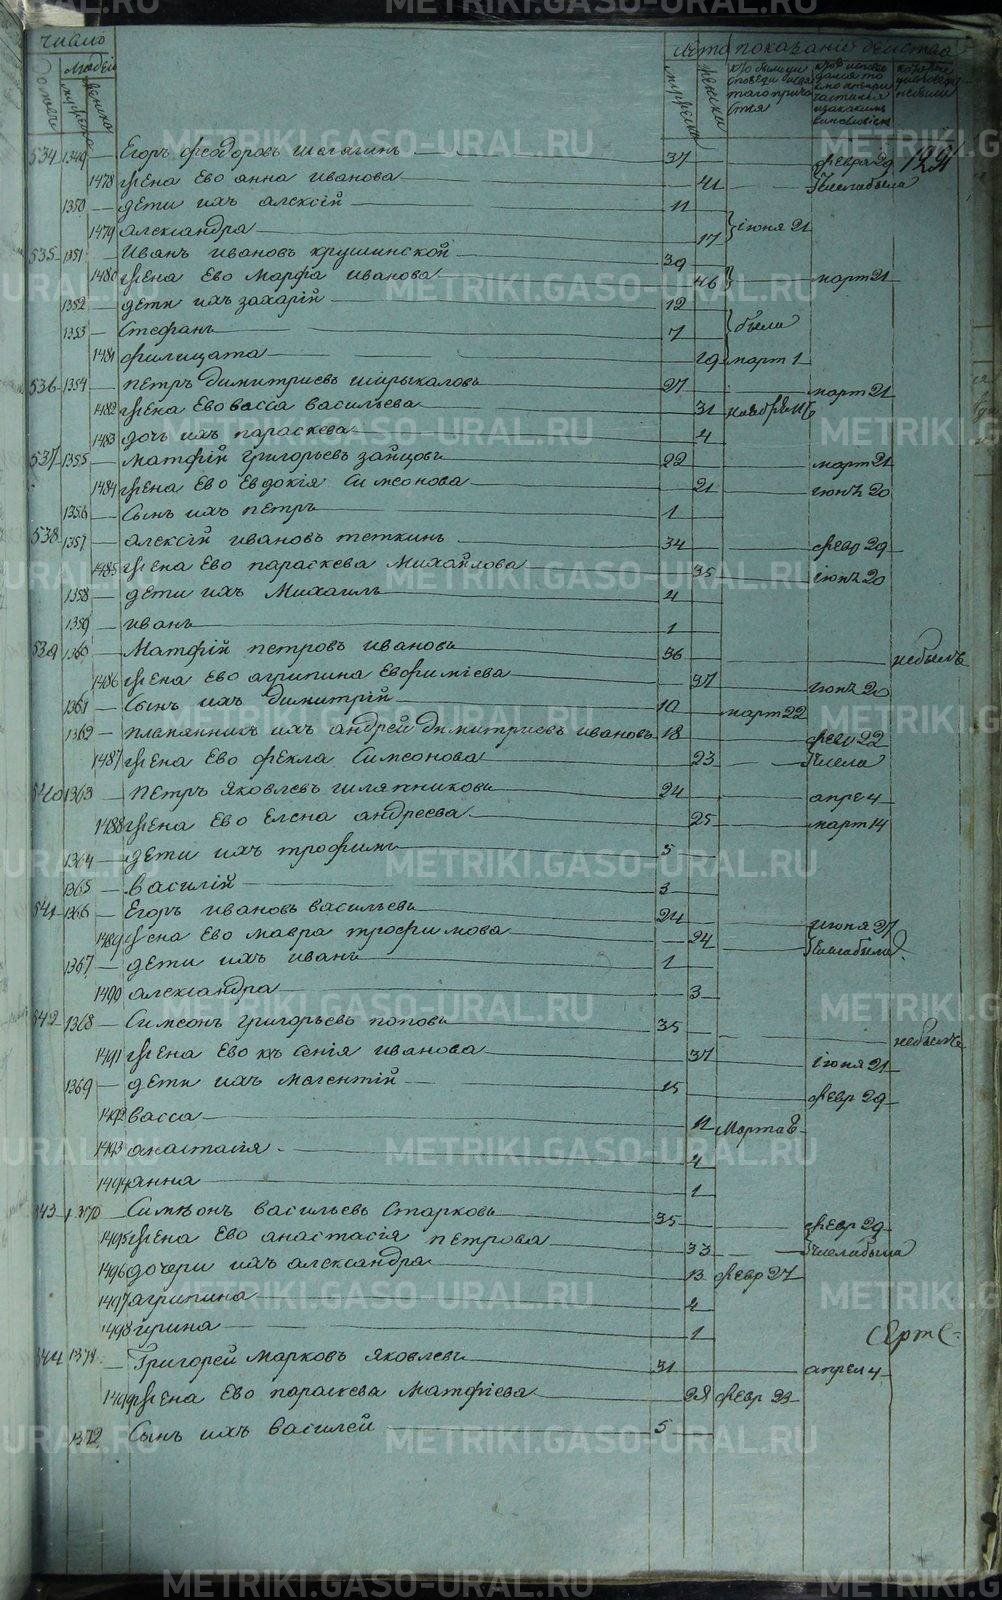 число
людей
лета
показаніе действа
мужеска
женска
534 1349 Егоръ феодоровъ 37 февра 29
1478 жена Ево анна иванова 41
1350 дети ихъ алексій 11
1479 александра 17 іюня 21
535 1351 Иванъ ивановъ крушинской 39
1480 жена Ево Марфа иванова 46 март 21
1352 дети ихъ захарій 12
1353 Стефанъ 7 были
1481 филицата 19 март 1
536 1354 петръ димитриевъ 27 март 21
1482 жена Ево васса васильева 31
1483 дочь ихъ параскева 4
537 1355 Матфій григорьевъ зайцовъ 22 март 21
1484 жена Ево Евдокія Симеонова 21 іюнь 20
1356 Сынъ ихъ петръ 1
538 1357 алексій ивановъ теткинъ 34 февр 29
1485 жена Ево параскева Михайлова 35 іюнь 20
1358 дети ихъ Михаилъ 4
1359 иванъ 1
539 1360 Матфій петровъ ивановъ 36 небылъ
1486 жена Ево агрипина Евфиміева 37 іюнь 20
1361 Сынъ ихъ димитрій 10 март 22
1362 племянникъ ихъ андрей димитриевъ ивановъ 18 февр 22
1487 жена Ево фекла Симеонова 23
540 1363 петръ яковлевъ шляпниковъ 24 апре 4
1488 жена Ево Елена андреева 25 март 14
1364 дети ихъ трофимъ 5
1365 василій 3
541 1366 Егоръ ивановъ васильевъ 24 іюня 27
1489 жена Ево мавра трофимова 24
1367 дети ихъ иванъ 1
1490 александра 3
542 1368 Симеонъ григорьевъ поповъ 35 небылъ
1491 жена Ево ксенія иванова 37 іюня 21
1369 дети ихъ 15 февр 29
1492 васса 11 Марта 8
1493 анастасія 4
1494 анна 1
543 1370 Симеонъ васильевъ Старковъ 35 февр 29
1495 жена Ево анастасія петрова 33
1496 дочери ихъ александра 13 февр 27
1497 агрипина 4
1498 ирина 1
544 1371 Григорей Марковъ яковлевъ 31 апрел 4
1499 жена Ево параскева Матфіева 28 февр 23
1372 Сынъ ихъ василей 5
METRIKI.GASO-URAL.RU